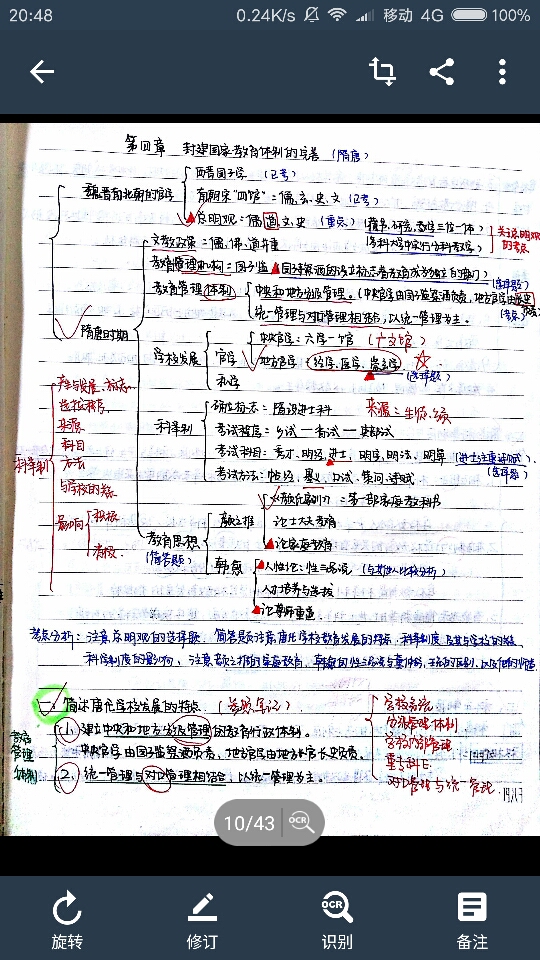 20:48
0.24K/s
移动 4G
100%
第四章 封建国家教育体制的完善 (隋唐)
魏晋南北朝的官学
西晋国子学 (记考)
南朝宋"四馆"：儒、玄、史、文 (记考)
总明观：儒道文史 (重点)
(藏书、研究、教学三位一体)
关注总明观的考点
隋唐时期
文教政策：儒、佛、道并重
教育管理机构：国子监
(选择题)
教育管理体制
中央和地方分级管理。
(考点)
统一管理与对口管理相结合，以统一管理为主。
学校发展
官学
中央官学：六学一馆 (广文馆)
地方官学 (经学、医学、崇玄学)
(选择题)
私学
科举制
确立标志：隋设进士科
来源：生徒、乡贡
考试程序：乡试—省试—吏部试
考试科目：秀才、明经、进士、明字、明法、明算
(选择题)
考试方法：帖经、墨义、口试、策问、诗赋
教育思想
(简答题)
颜之推
《颜氏家训》：第一部家庭教科书
论士大夫教育
论家庭教育
韩愈
人性论：性三品说
人才培养与选拔
论尊师重道
科举制
产生与发展、标志
考试程序
来源
科目
方法
与学校的关系
影响
积极
消极
考点分析：注意总明观的选择题，简答题注意唐代学校教育发展的特点，科举制度及其与学校的关系，
科举制度的影响，注意颜之推的家庭教育，
一、简述唐代学校发展的特点。(参照笔记)
教育管理体制
(1. 建立中央和地方分级管理的教育行政体制。
中央官学由国子监祭酒负责，地方官学由地方长官长史负责。
(2. 统一管理与对口管理相结合，以统一管理为主。
学校系统
分级管理体制
学校内部管理
重专科
对口管理与统一管理
10/43
OCR
旋转
修订
OCR
识别
备注